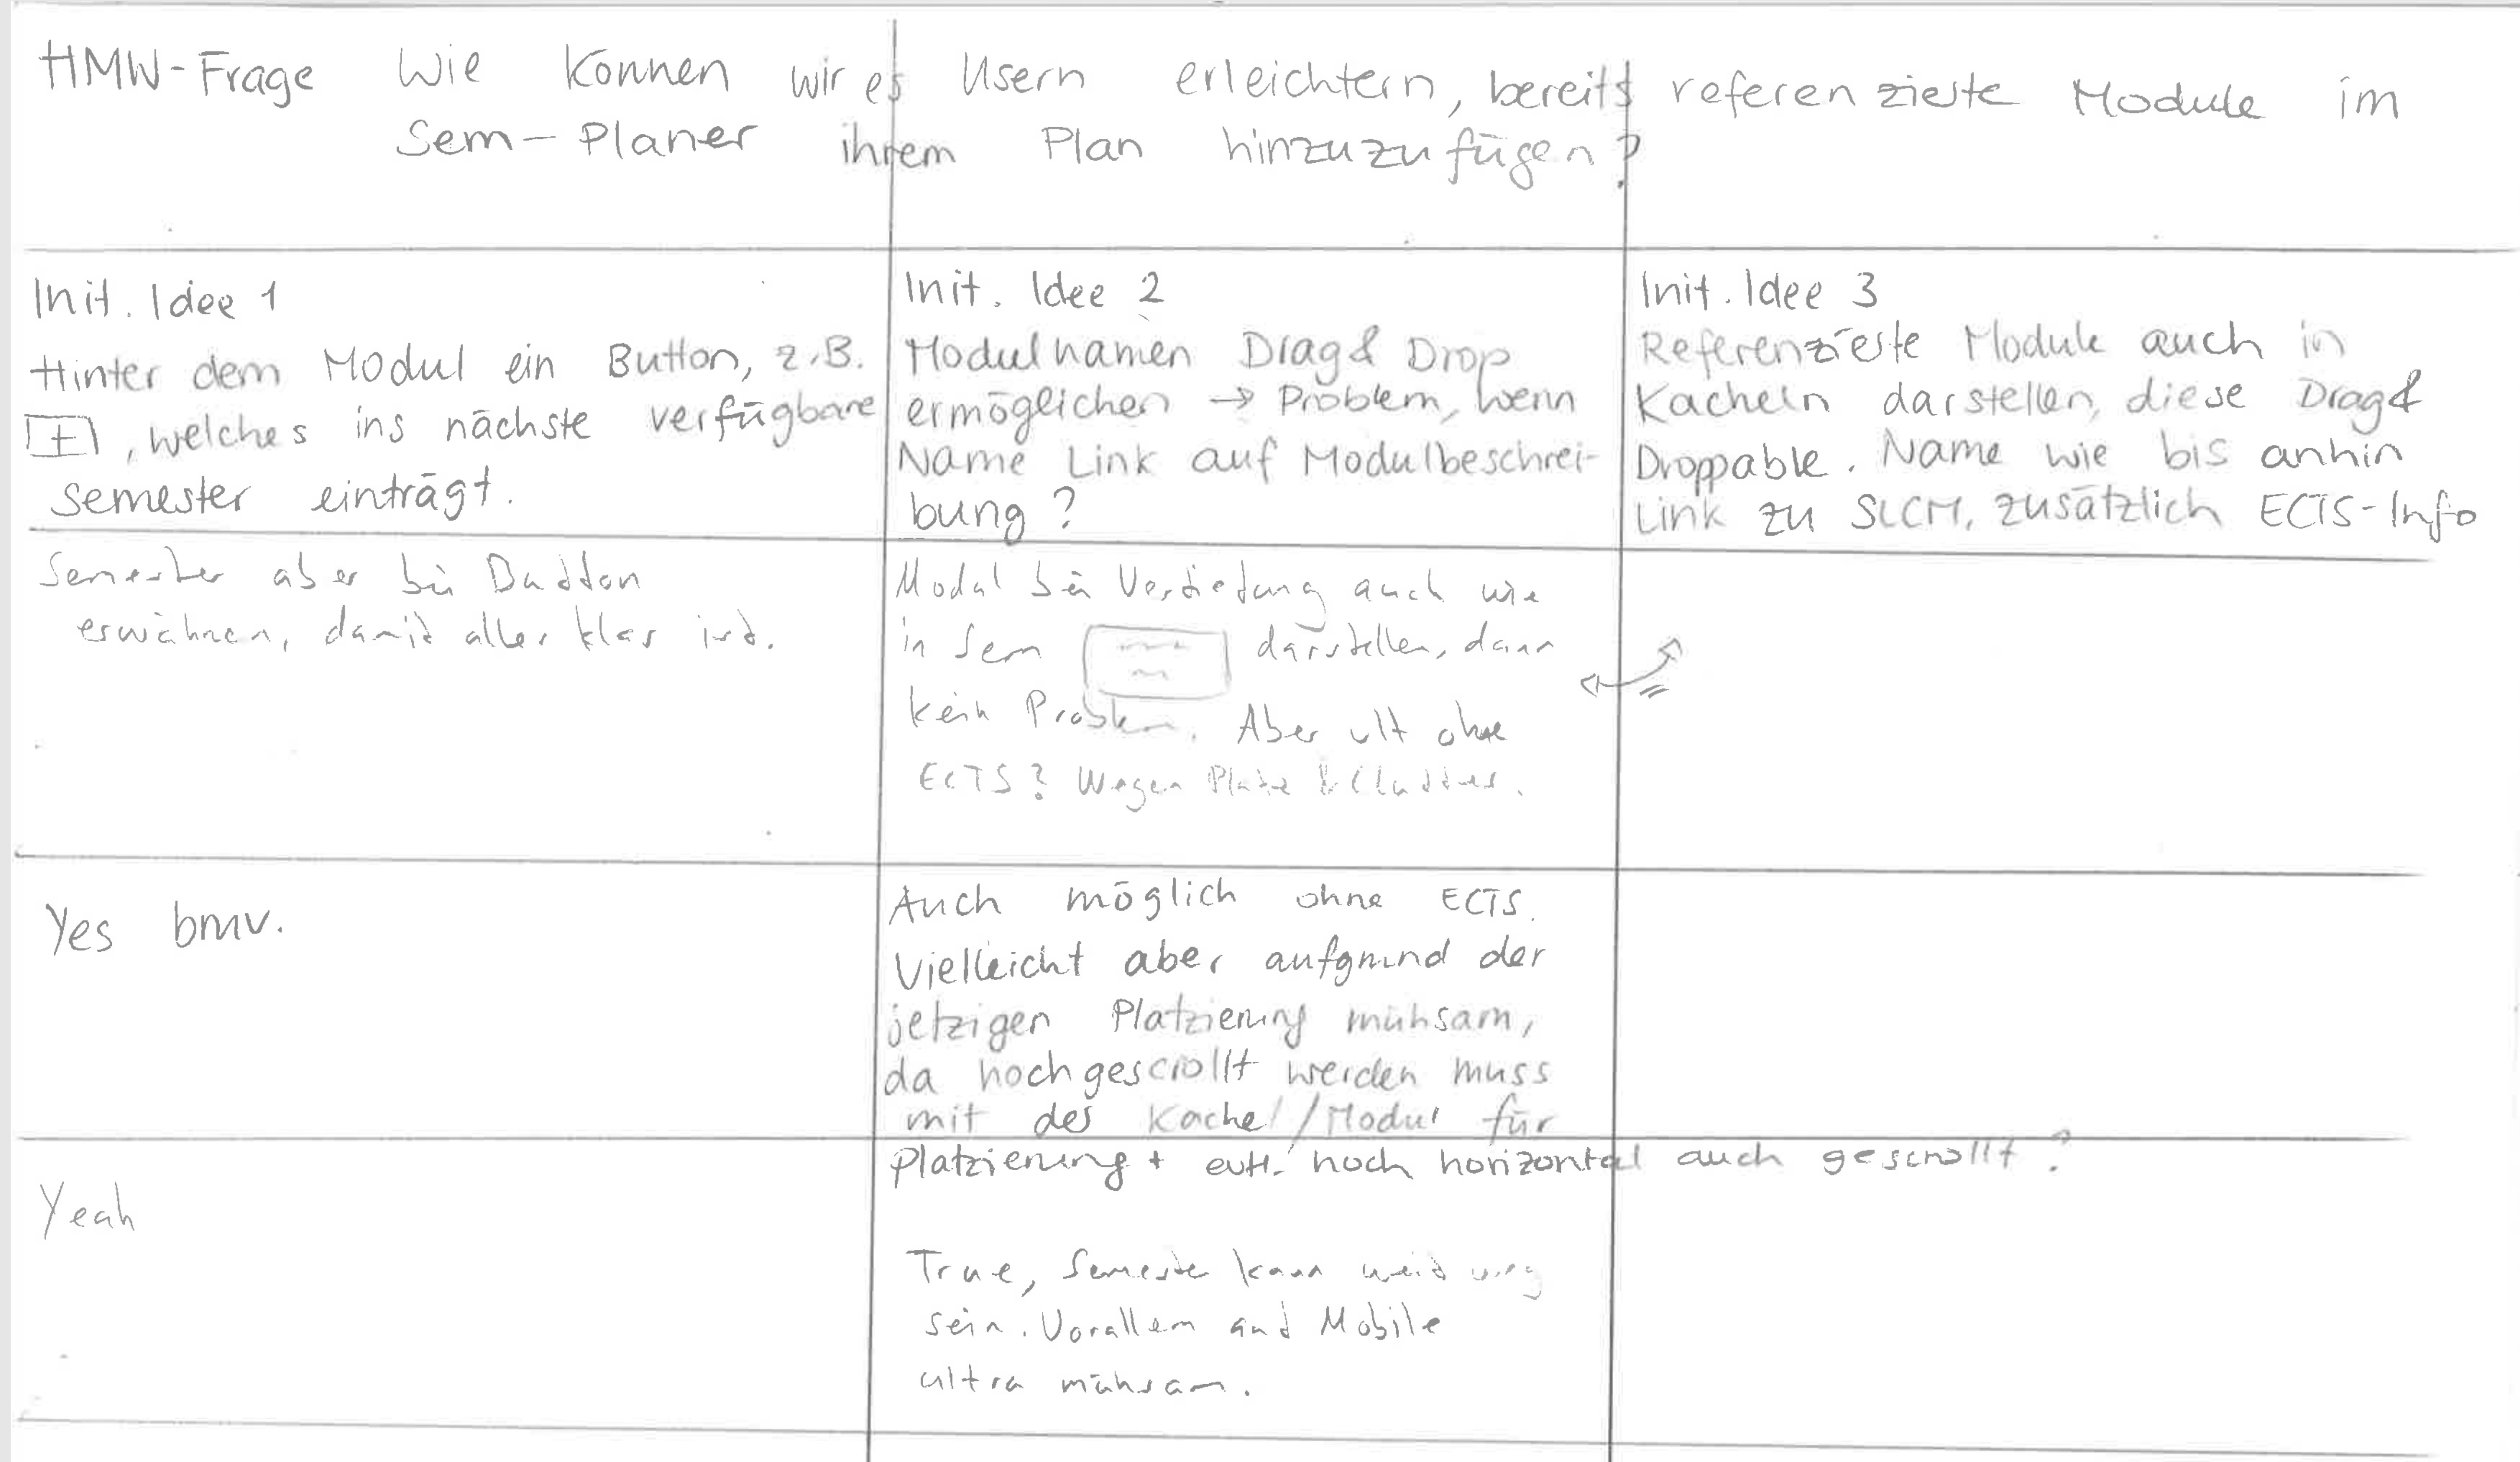 HMW-Frage Wie können wir es Usern erleichtern, bereits referenzierte Module im
Sem-Planer ihrem Plan hinzuzufügen?
Init. Idee 1
Hinter dem Modul ein Button, z.B.
[+], welches ins nächste verfügbare
Semester einträgt.
Init. Idee 2
Modulnamen Drag& Drop
ermöglichen → Problem, wenn
Name Link auf Modulbeschrei-
bung?
Init. Idee 3
Referenzierte Module auch in
Kacheln darstellen, diese Drag&
Droppable. Name wie bis anhin
Link zu SLCM, zusätzlich ECTS-Info
Semester aber bei Button
erwähnen, damit alles klar ist.
Modul bei Vertiefung auch wie
in Sem darstellen, dann
kein Problem. Aber vlt ohne
ECTS? Wegen Platz & Clutter.
Yes bmv.
Auch möglich ohne ECTS.
Vielleicht aber aufgrund der
jetzigen Platzierung mühsam,
da hochgescrollt werden muss
mit der Kachel/Modul für
Platzierung + evtl. noch horizontal auch gescrollt?
Yeah
True, Semester kann weit weg
sein. Vorallem auf Mobile
ultra mühsam.